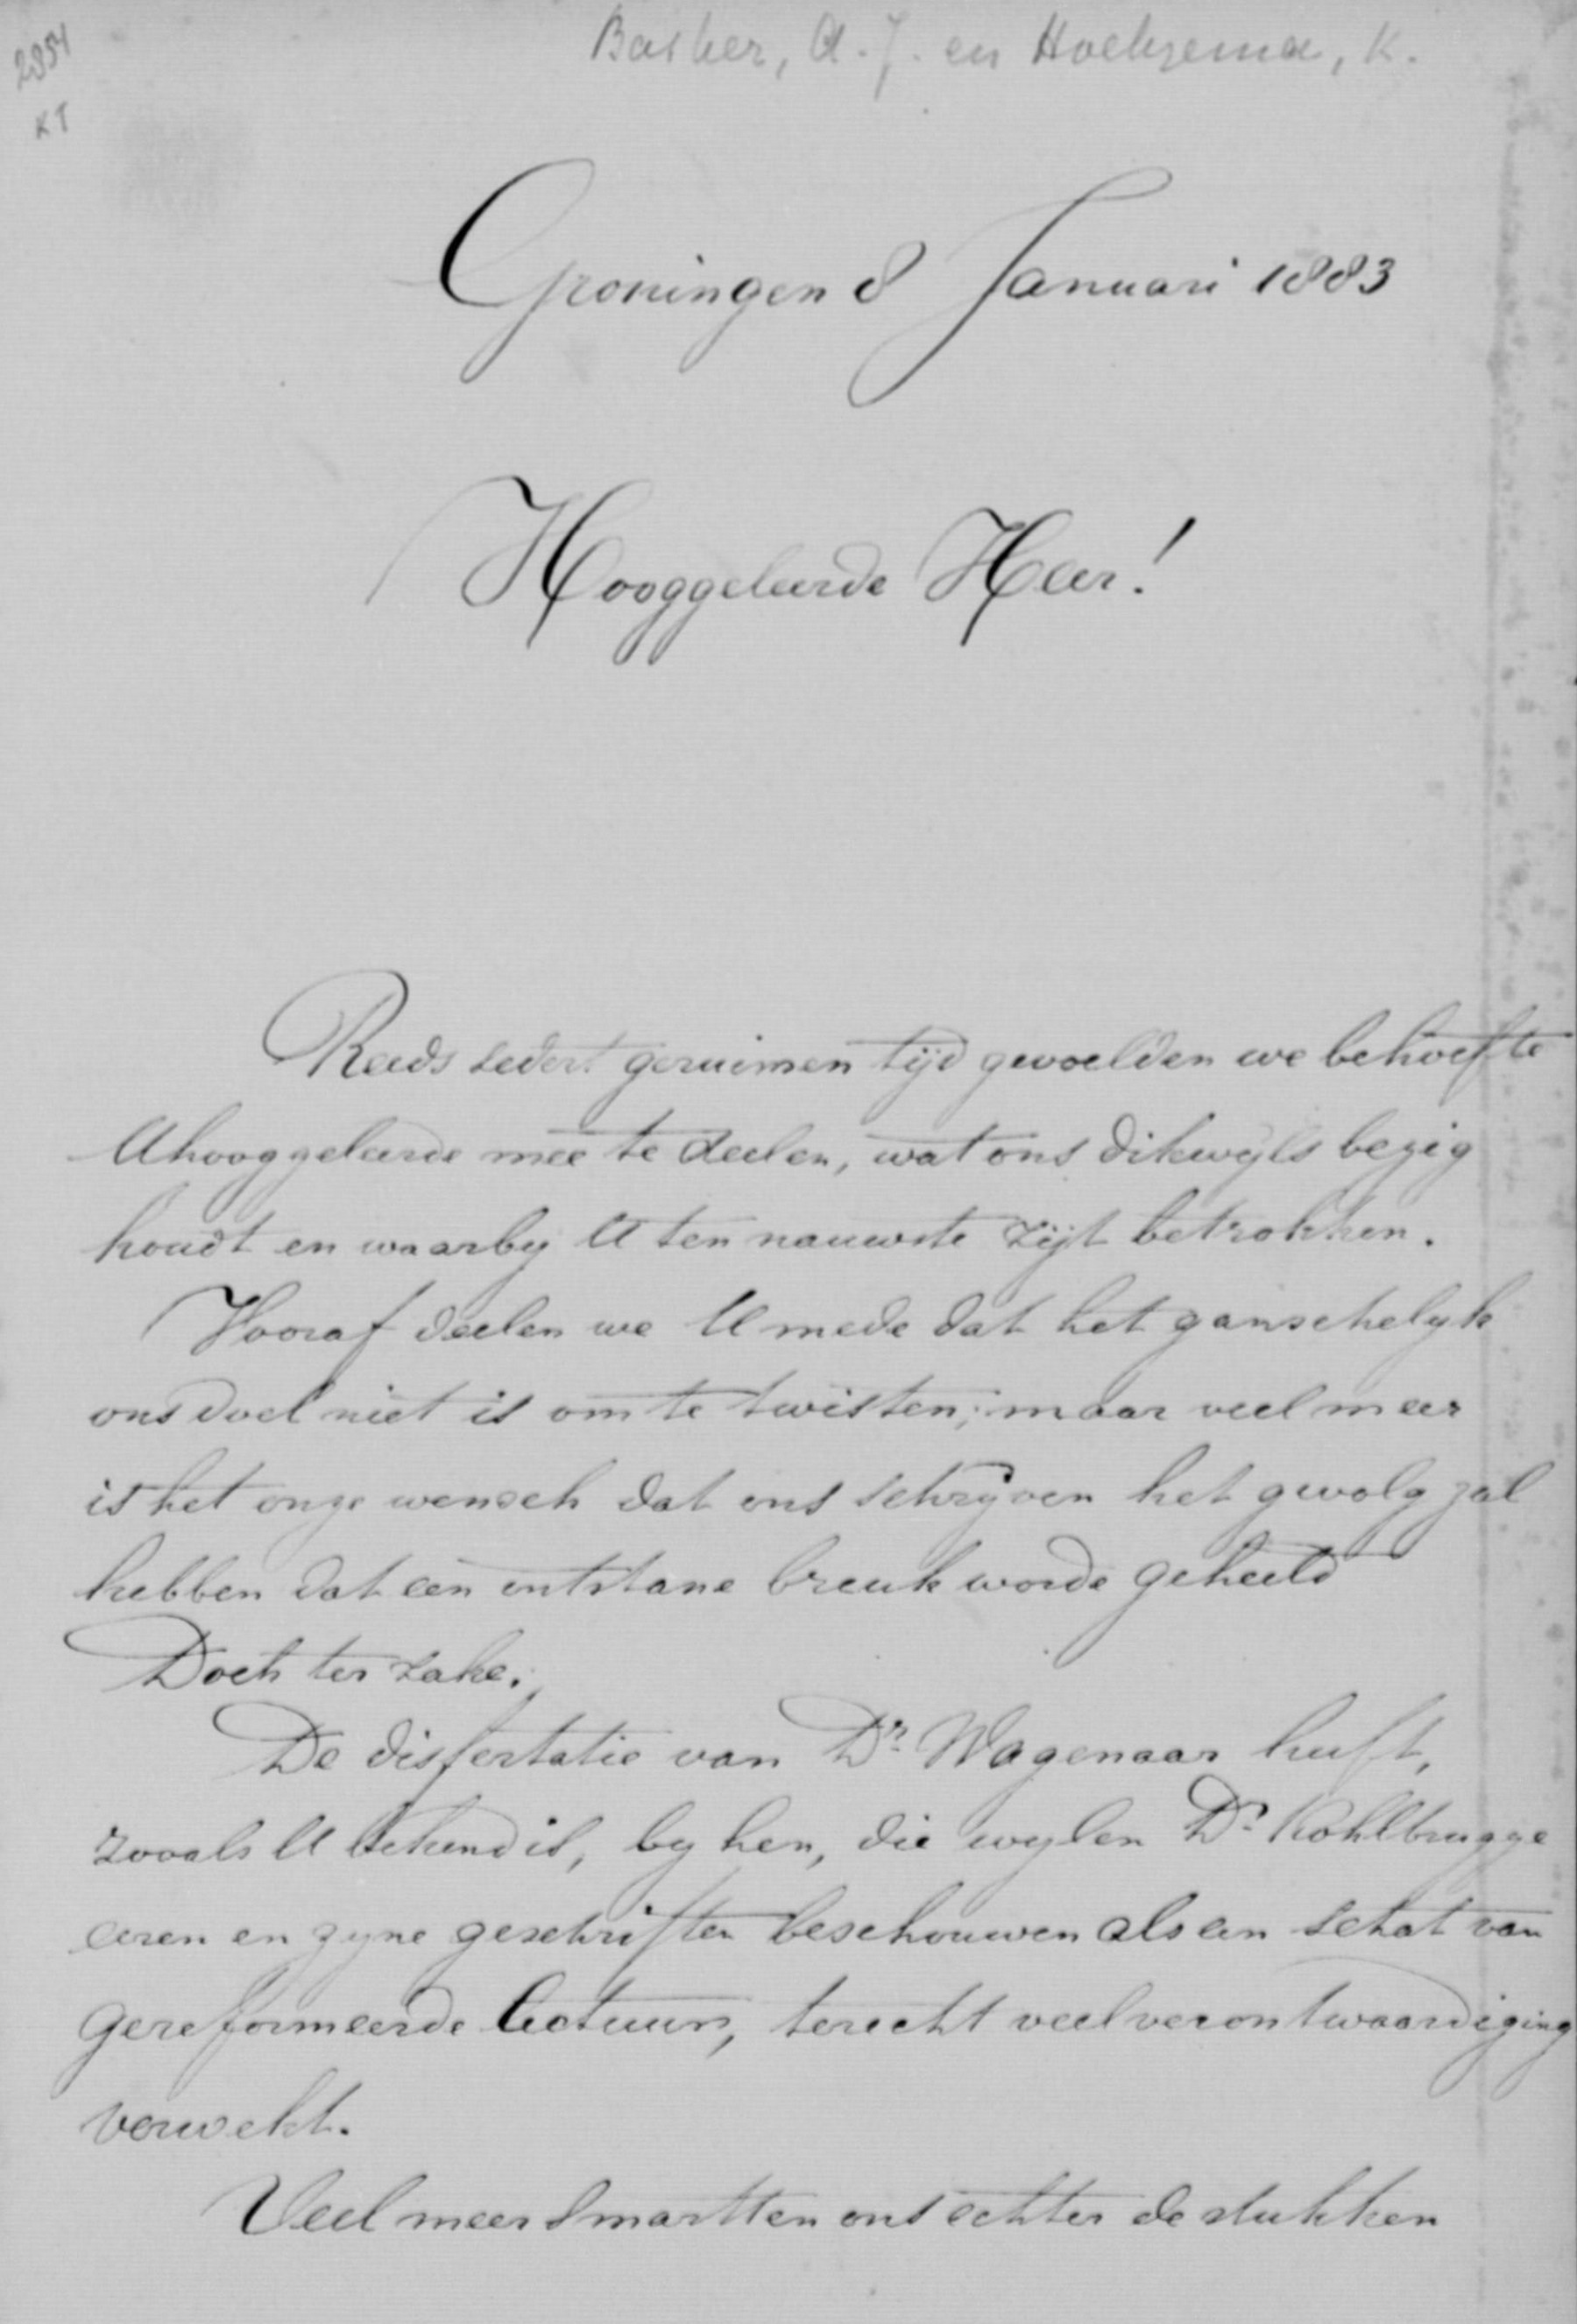 2954
KT
Bakker, A. J. en Hoeksema, K.
Groningen 8 Januari 1883
Hooggeleerde Heer!
Reeds sedert geruimen tijd gevoelden we behoefte
U hooggeleerde mee te deelen, wat ons dikwyls bezig
houdt en waarby U ten nauwste zijt betrokken.
Vooraf deelen we U mede dat het ganschelyk
ons doel niet is om te twisten; maar veel meer
is het onze wensch dat ons schrijven het gevolg zal
hebben dat een ontstane breuk worde geheeld
Doch ter zake.
De dissertatie van Dr. Wagenaar heeft,
zooals U bekend is, by hen, die wylen Dr. Kohlbrugge
eeren en zyne geschriften beschouwen als een schat van
gereformeerde lectuur, terecht veel verontwaardiging
verwekt.
Veel meer smartten ons echter de stukken